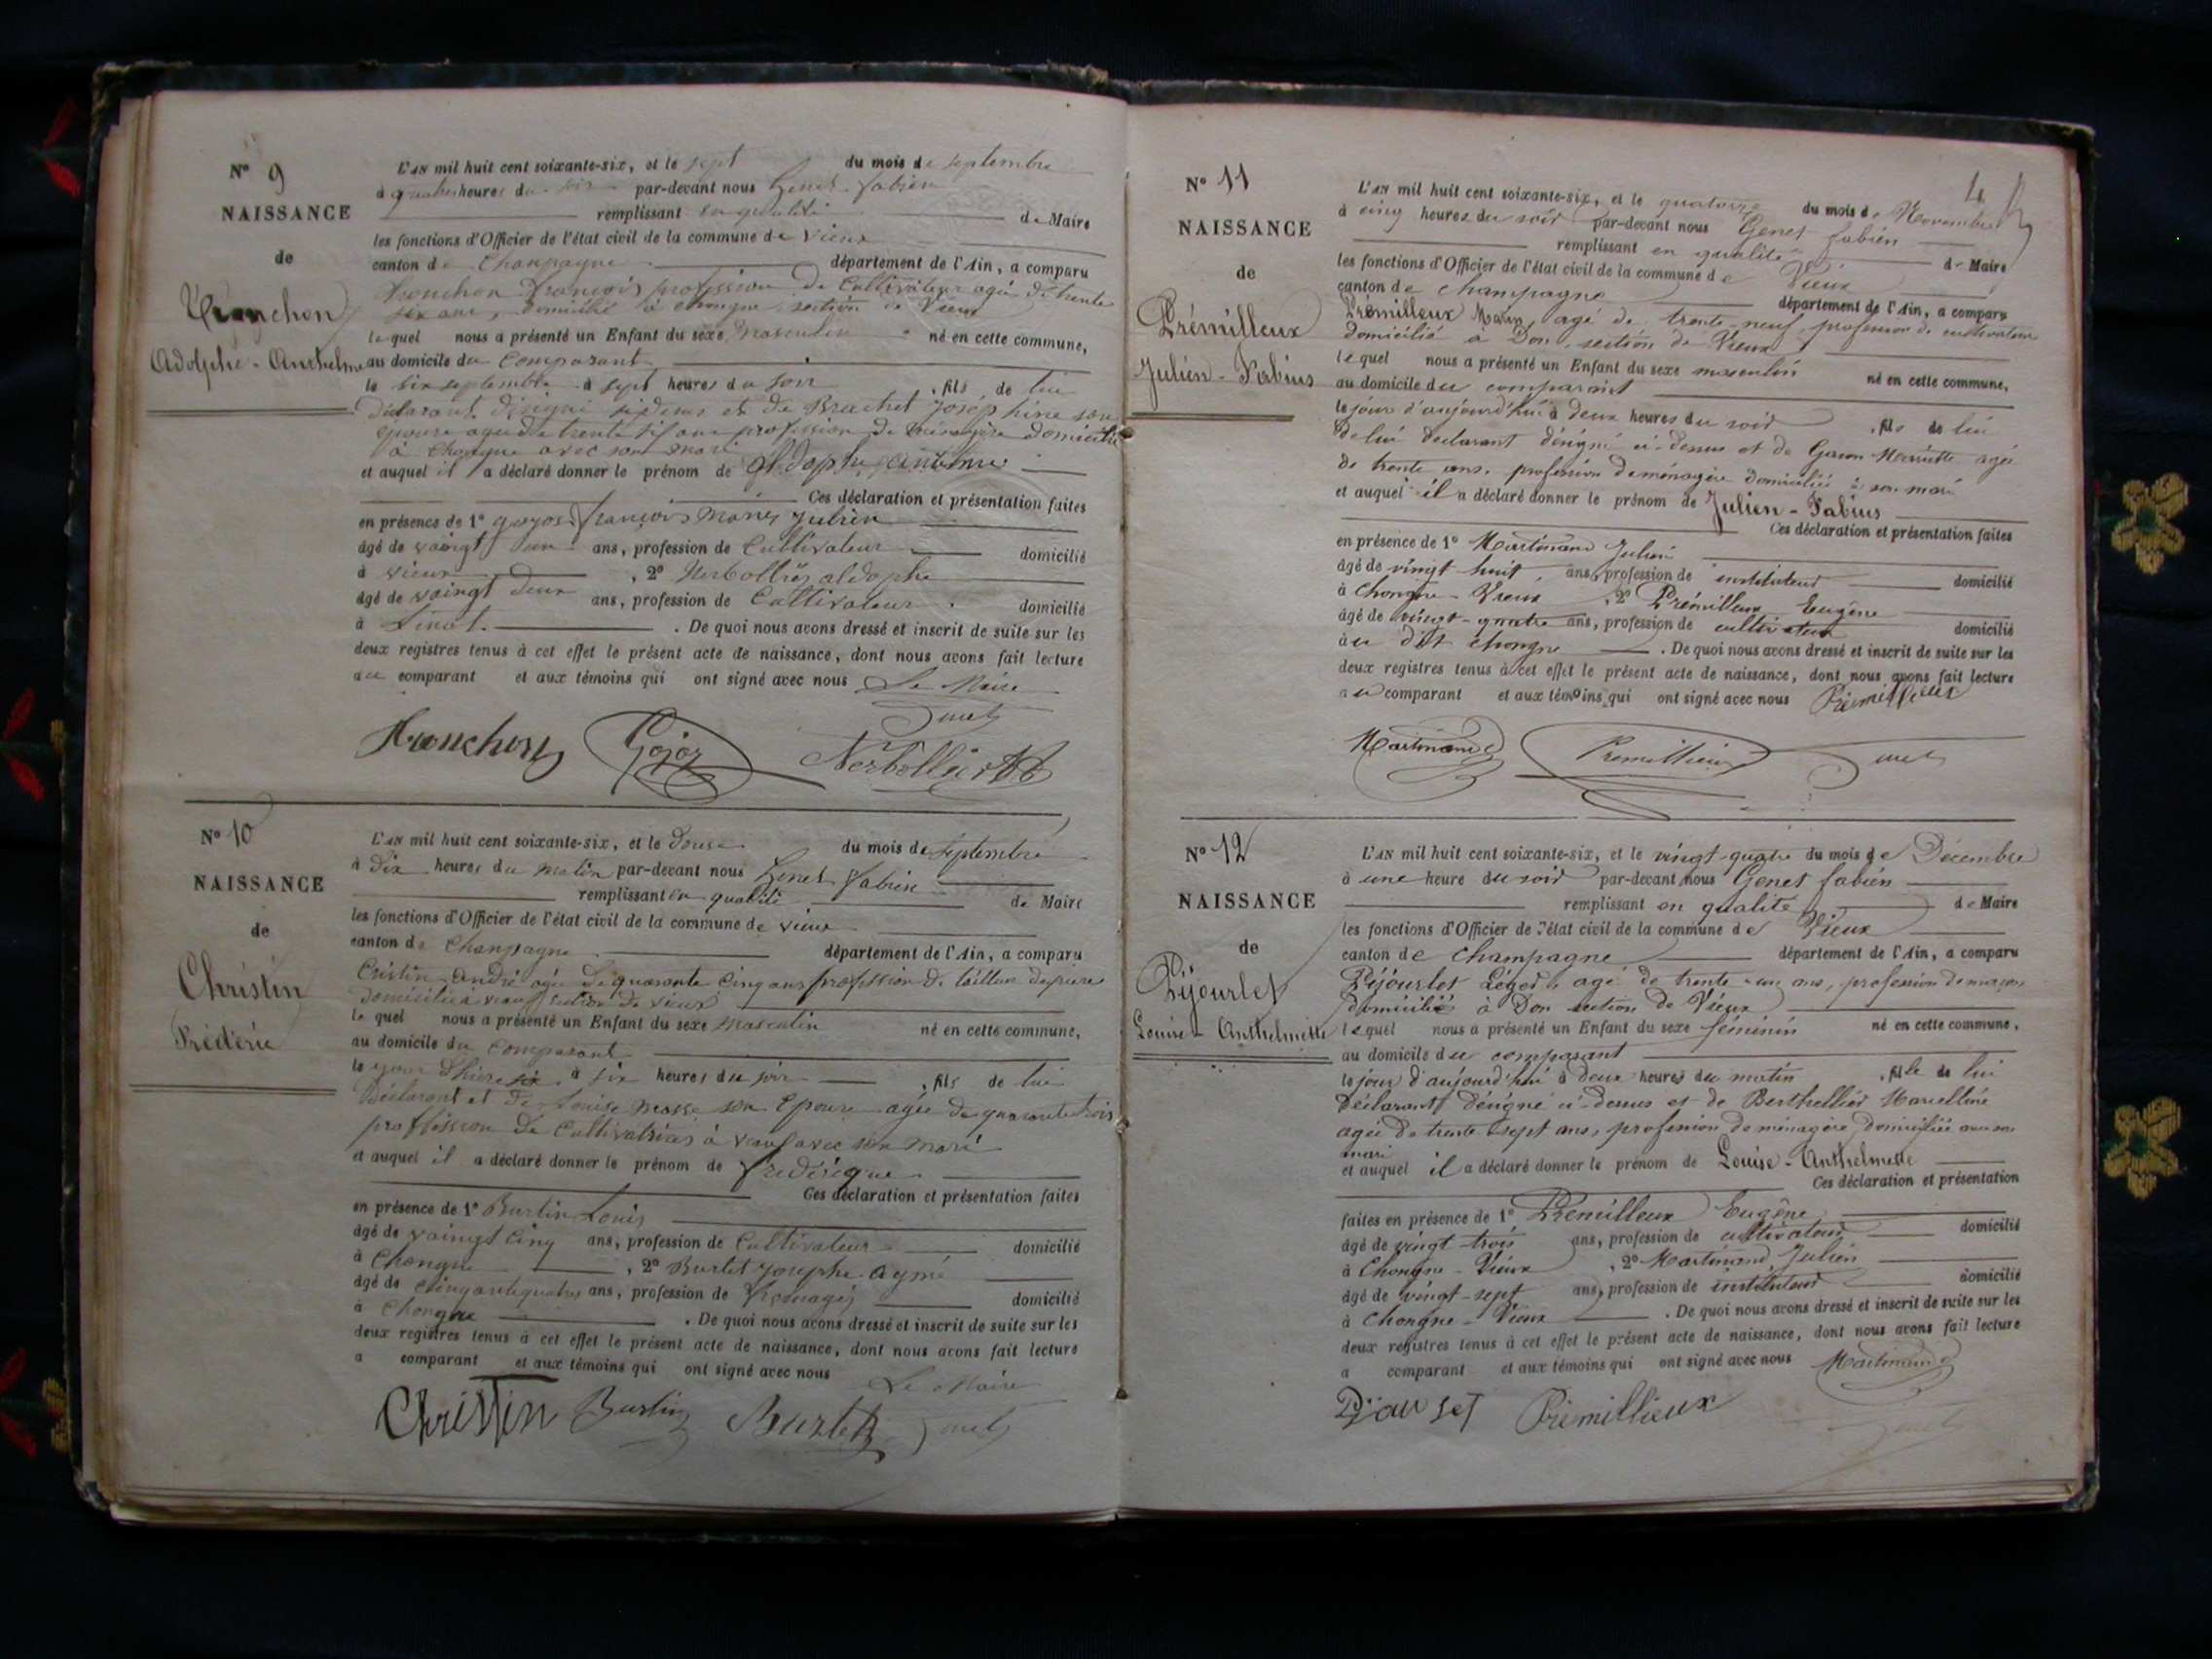 N° 9
NAISSANCE
de
Tronchon
Adolphe - Anthelme
L'AN mil huit cent soixante-six, et le sept du mois de septembre
à quatre heures du soir par-devant nous Genet fabien
remplissant en qualité de Maire
les fonctions d'Officier de l'état civil de la commune de vieux
canton de Champagne département de l'Ain, a comparu
tronchon françois profession de Cultivateur agé de trente
six ans, domicilié à chongne section de Vieux
lequel nous a présenté un Enfant du sexe masculin né en cette commune,
au domicile du Comparant
le six septembre à sept heures du soir, fils de lui
déclarant désigné si desus et de Brachet Joséphine son
épouse agée de trente six ans profession de ménagère domicilié
à chongne avec son mari
et auquel il a déclaré donner le prénom de Aldophe, antelme
Ces déclaration et présentation faites
en présence de 1° françois Marie Julien
âgé de vaingt un ans, profession de Cultivateur domicilié
à vieux, 2° aldophe
âgé de vaingt deux ans, profession de Cultivateur domicilié
à . De quoi nous avons dressé et inscrit de suite sur les
deux registres tenus à cet effet le présent acte de naissance, dont nous avons fait lecture
au comparant et aux témoins qui ont signé avec nous Le Maire
Genet
Tronchon Gojoz
N° 10
NAISSANCE
de
Christin
Frédéric
L'AN mil huit cent soixante-six, et le douse du mois de septembre
à Dix heures du matin par-devant nous Genet fabien
remplissant en qualité de Maire
les fonctions d'Officier de l'état civil de la commune de vieux
canton de Champagne département de l'Ain, a comparu
Cristin andré agé de quarante cinq ans profession de tailleur de piere
domicilié à section de vieux
lequel nous a présenté un Enfant du sexe masculin né en cette commune,
au domicile du Comparant
le jour à six heures du soir, fils de lui
Déclarant et de Louise masse son Epouse agée de quarante trois
proffission de Cultivatrices à avec son mari
et auquel il a déclaré donner le prénom de frederique
Ces déclaration et présentation faites
en présence de 1° Burtin Louis
âgé de vaingt cinq ans, profession de Cultivateur domicilié
à Chongne, 2° Burlet Josephe aymé
âgé de cinquante quatre ans, profession de fromager domicilié
à Chongne . De quoi nous avons dressé et inscrit de suite sur les
deux registres tenus à cet effet le présent acte de naissance, dont nous avons fait lecture
a comparant et aux témoins qui ont signé avec nous
Le Maire
Christin Burtin Burlet Genet
4
N° 11
NAISSANCE
de
Prémilleux
Julien - Fabius
L'AN mil huit cent soixante-six, et le quatorze du mois de Novembre
à cinq heures du soir par-devant nous Genet fabien
remplissant en qualité de Maire
les fonctions d'Officier de l'état civil de la commune de Vieux
canton de Champagne département de l'Ain, a comparu
Prémilleux agé de trente-neuf, profession de cultivateur
domicilié à Don, section de Vieux
lequel nous a présenté un Enfant du sexe masculin né en cette commune,
au domicile du comparant
le jour d'aujourd'hui à deux heures du soir, fils de lui
de lui declarant désigné ci-dessus et de Henriette agée
de trente ans, profession de ménagère domiciliée à son mari
et auquel il a déclaré donner le prénom de Julien - Fabius
Ces déclaration et présentation faites
en présence de 1° Martinand Julien
âgé de vingt huit ans, profession de instituteur domicilié
à Chongne - Vieux, 2° Prémilleux Eugène
âgé de vingt-quatre ans, profession de cultivateur domicilié
au dit chongne . De quoi nous avons dressé et inscrit de suite sur les
deux registres tenus à cet effet le présent acte de naissance, dont nous avons fait lecture
au comparant et aux témoins qui ont signé avec nous Prémillieux
Martinand Premillieux Genet
N° 12
NAISSANCE
de
Péjourlet
Louise - Anthelmette
L'AN mil huit cent soixante-six, et le vingt-quatre du mois de Décembre
à une heure du soir par-devant nous Genet fabien
remplissant en qualité de Maire
les fonctions d'Officier de l'état civil de la commune de Vieux
canton de Champagne département de l'Ain, a comparu
Péjourlet Léger, agé de trente-un ans, profession de maçon
domicilié à Don section de Vieux
lequel nous a présenté un Enfant du sexe féminin né en cette commune,
au domicile du comparant
le jour d'aujourd'hui à deux heures du matin, fille de lui
déclarant désigné ci-dessus et de Berthellier Marcelline
agée de trente-sept ans, profession de ménagère, domiciliée avec son
mari
et auquel il a déclaré donner le prénom de Louise - Anthelmette
Ces déclaration et présentation
faites en présence de 1° Prémilleux Eugène
âgé de vingt-trois ans, profession de cultivateur domicilié
à Chongne - Vieux, 2° Martinand Julien
âgé de vingt-sept ans, profession de instituteur domicilié
à Chongne - Vieux . De quoi nous avons dressé et inscrit de suite sur les
deux registres tenus à cet effet le présent acte de naissance, dont nous avons fait lecture
a comparant et aux témoins qui ont signé avec nous Martinand
Prémillieux
Genet